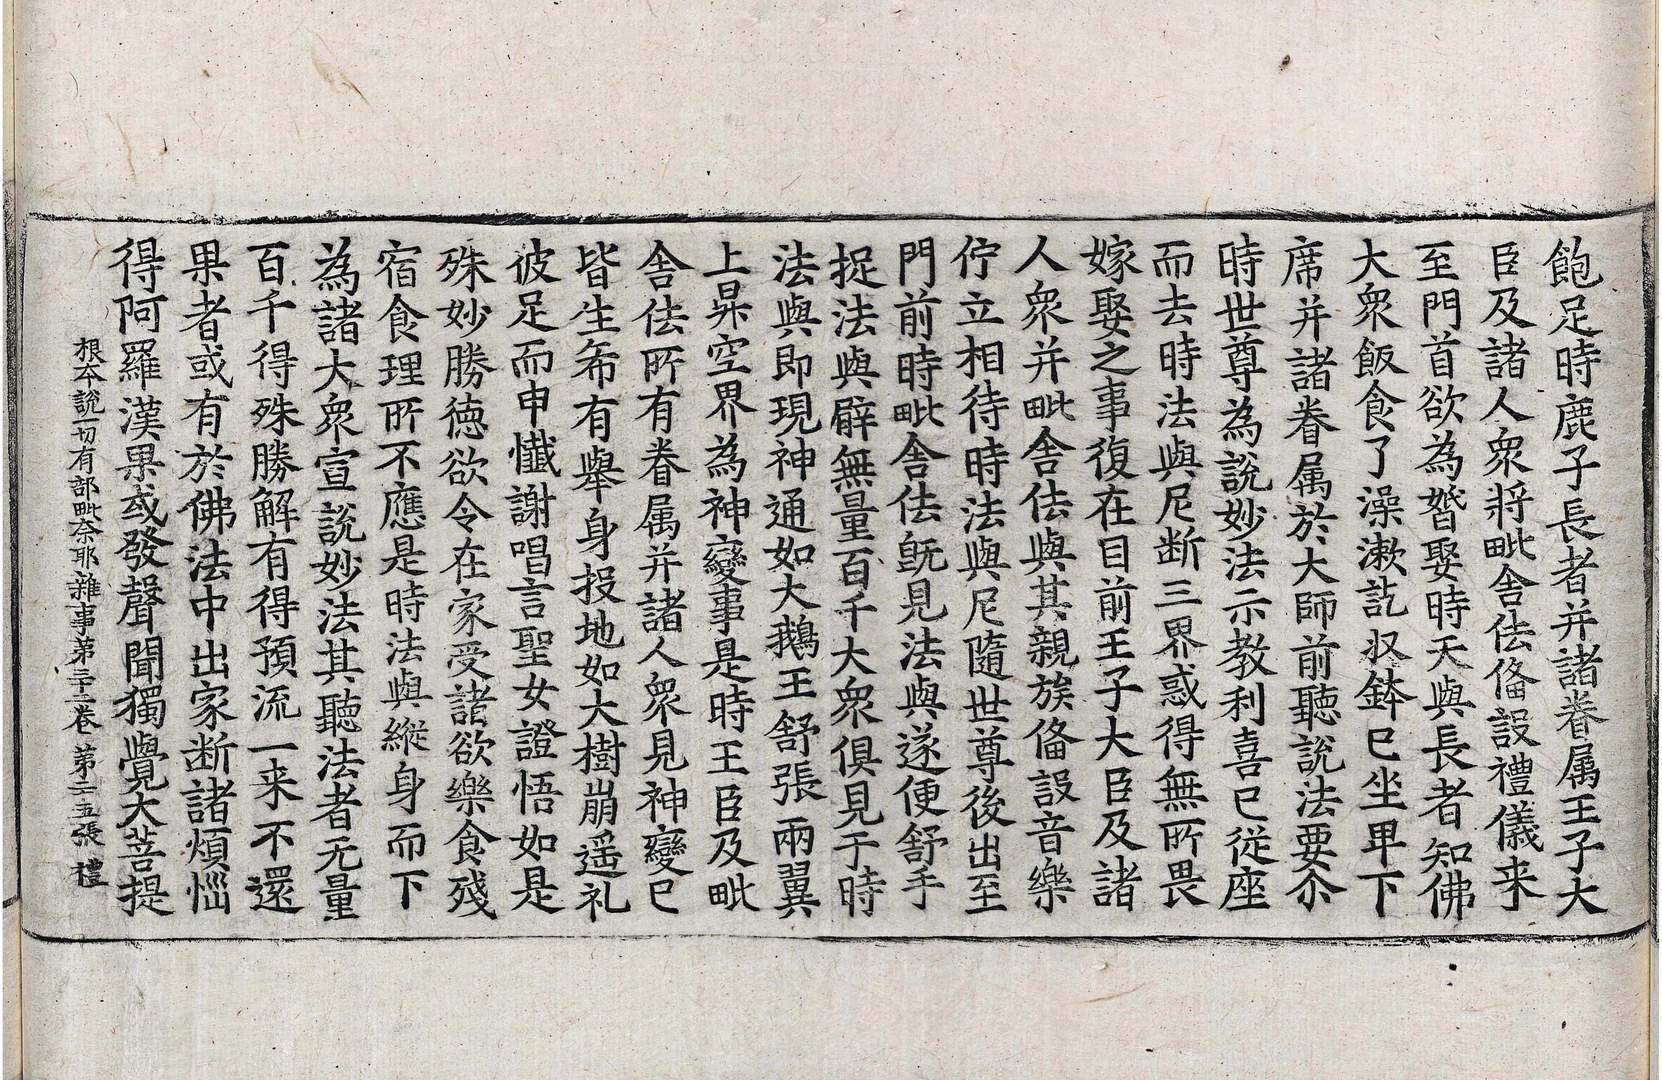 飽足時鹿子長者并諸眷属王子大
臣及諸人衆將毗舍佉俻設禮儀来
至門首欲為婚娶時天與長者知佛
大衆飯食了澡漱訖収鉢已坐卑下
席并諸眷属於大師前聽說法要尒
時世尊為說妙法示教利喜已從座
而去時法與尼断三界惑得無所畏
嫁娶之事復在目前王子大臣及諸
人衆并毗舍佉與其親族俻設音樂
佇立相待時法與尼隨世尊後出至
門前時毗舍佉旣見法與遂便舒手
捉法與臂無量百千大衆俱見于時
法與即現神通如大鵝王舒張兩翼
上昇空界為神變事是時王臣及毗
舍佉所有眷属并諸人衆見神變已
皆生希有舉身投地如大樹崩遥礼
彼足而申懺謝唱言聖女證悟如是
殊妙勝德欲令在家受諸欲樂食殘
宿食理所不應是時法與縱身而下
為諸大衆宣說妙法其聽法者无量
百千得殊勝解有得預流一来不還
果者或有於佛法中出家断諸煩惱
得阿羅漢果或發聲聞獨覺大菩提
根本說一切有部毗奈耶雜事第三十二卷 第二十五張 禮